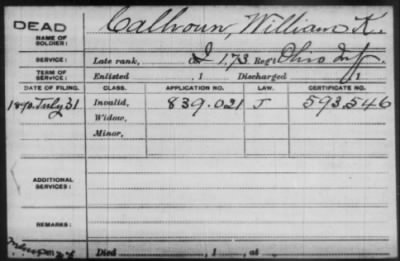 DEAD Calhoun, William K.
NAME OF SOLDIER:
SERVICE: Late rank, Co I, 173 Reg't Ohio Inf.
TERM OF SERVICE: Enlisted , 1 Discharged , 1
DATE OF FILING. CLASS. APPLICATION NO. LAW. CERTIFICATE NO.
1890. July 31 Invalid, 839.021 J 593,546
Widow,
Minor,
ADDITIONAL SERVICES:
REMARKS:
Died , 1 , at